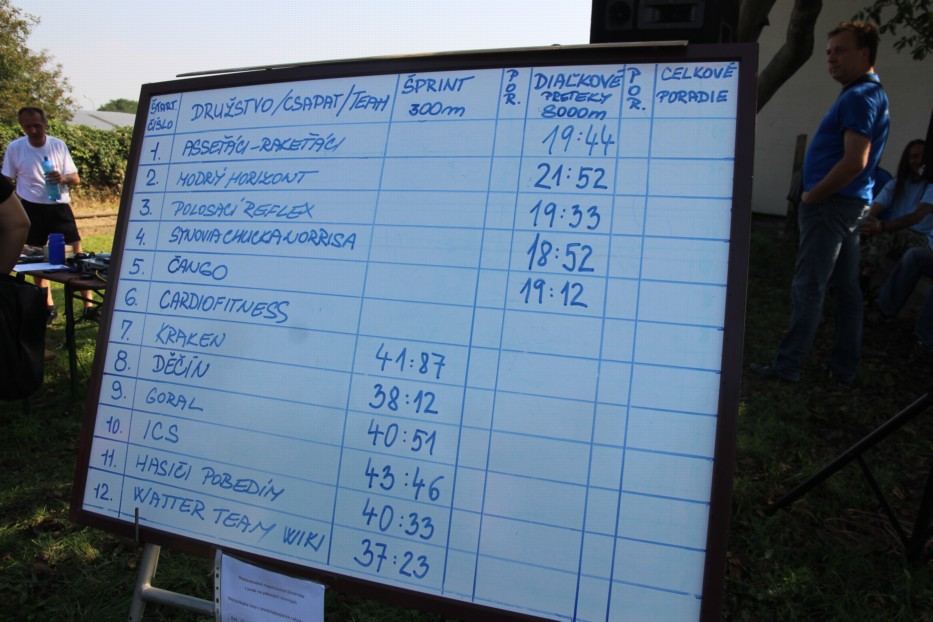 ŠTART. ČÍSLO DRUŽSTVO/CSAPAT/TEAM ŠPRINT 300m POR. DIAĽKOVÉ PRETEKY 8000m POR. CELKOVÉ PORADIE
1. ASSEŤÁCI-RAKEŤÁCI 19:44
2. MODRÝ HORIZONT 21:52
3. POLOSACI REFLEX 19:33
4. SYNOVIA CHUCKA NORRISA 18:52
5. ČANGO 19:12
6. CARDIOFITNESS
7. KRAKEN 41:87
8. DĚČÍN 38:12
9. GORAL 40:51
10. ICS 43:46
11. HASIČI POBEDIM 40:33
12. WATTER TEAM WIKI 37:23